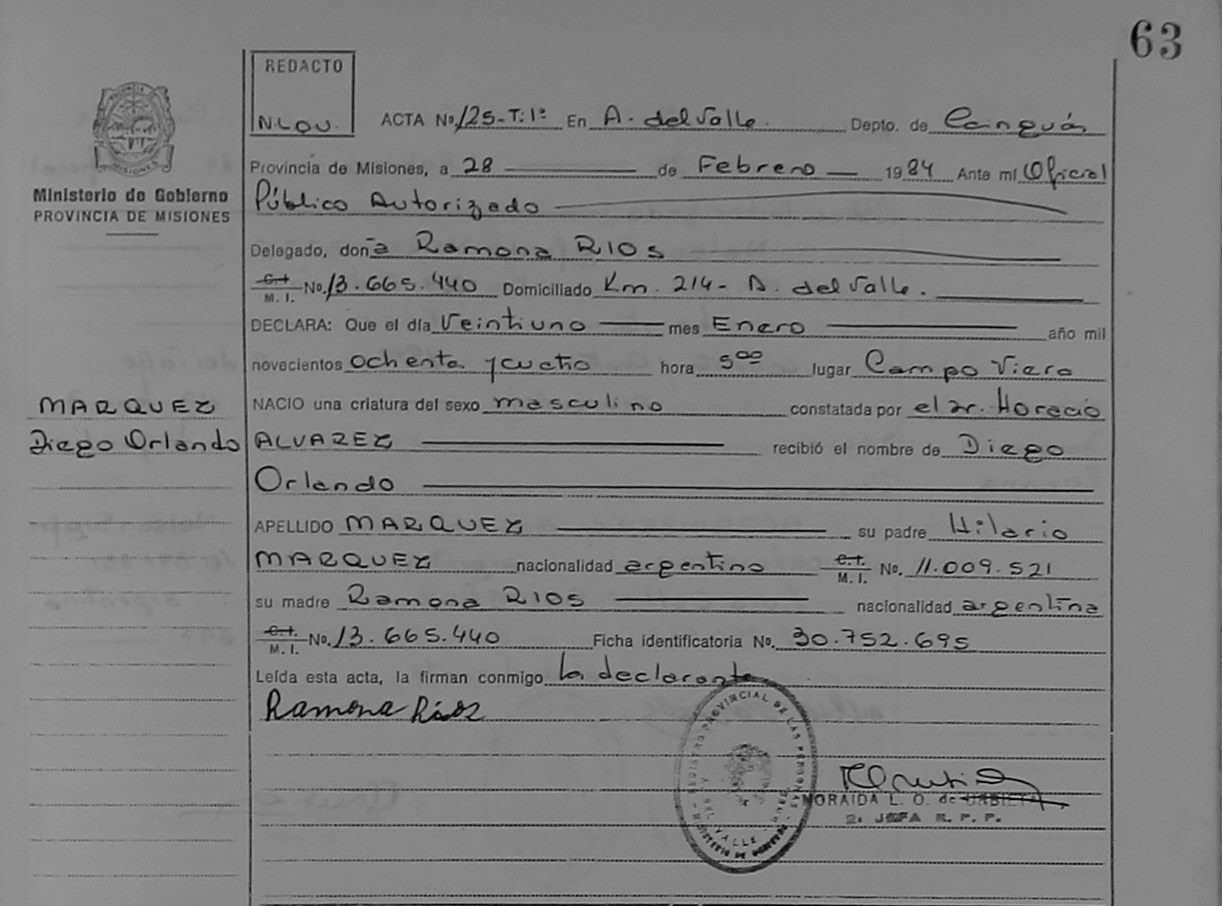 63
REDACTO
N.L.O.U.
ACTA Nº 125-T:1º En A. del Valle. Depto. de Cainguás
Provincia de Misiones, a 28 de Febrero 1984 Ante mí Oficial
Ministerio de Gobierno
PROVINCIA DE MISIONES
Público Autorizado
Delegado, doña Ramona RIOS
C.I. M. I. No. 13.665.440 Domiciliado Km. 214- A. del Valle.
DECLARA: Que el día Veintiuno mes Enero año mil
novecientos ochenta y cuatro hora 5 00 lugar Campo Viera
MARQUEZ
NACIO una criatura del sexo masculino constatada por el dr. Horacio
Diego Orlando
ALVAREZ recibió el nombre de Diego
Orlando
APELLIDO MARQUEZ su padre Hilario
MARQUEZ nacionalidad argentino C.I. M. I. No. 11.009.521
su madre Ramona RIOS nacionalidad argentina
C.I. M. I. No. 13.665.440 Ficha identificatoria No. 30.752.695
Leída esta acta, la firman conmigo la declarante
Ramona Ríos
REGISTRO PROVINCIAL DE LAS PERSONAS
DEL VALLE
MINISTERIO DE GOBIERNO
NORAIDA L. O. de URBIETA
2: JEFA R. P. P.